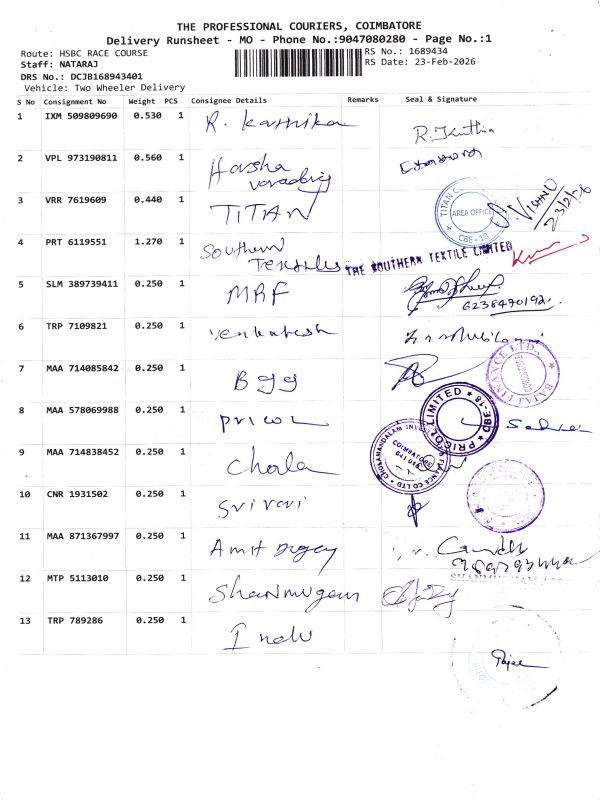 THE PROFESSIONAL COURIERS, COIMBATORE
Delivery Runsheet - MO - Phone No.:9047080280 - Page No.:1
Route: HSBC RACE COURSE
RS No.: 1689434
Staff: NATARAJ
RS Date: 23-Feb-2026
DRS No.: DCJB168943401
Vehicle: Two Wheeler Delivery
S No Consignment No Weight PCS Consignee Details Remarks Seal & Signature
1 IXM 509809690 0.530 1 R. Karthika
2 VPL 973190811 0.560 1 Harsha
3 VRR 7619609 0.440 1 TITAN AREA OFFICE CBE-18 VISHNU 23/2/26
4 PRT 6119551 1.270 1 Southern Textiles THE SOUTHERN TEXTILE LIMITED
5 SLM 389739411 0.250 1 MRF 6238470192
6 TRP 7109821 0.250 1 Venkatesh
7 MAA 714085842 0.250 1 BAJAJ FINANCE LTD.
8 MAA 578069988 0.250 1 Pricol PRICOL LIMITED
9 MAA 714838452 0.250 1 Chola CHOLAMANDALAM FINANCE CO LTD COIMBATORE
10 CNR 1931502 0.250 1 Srivari
11 MAA 871367997 0.250 1 Amit
12 MTP 5113010 0.250 1 Shanmugam
13 TRP 789286 0.250 1 Indu